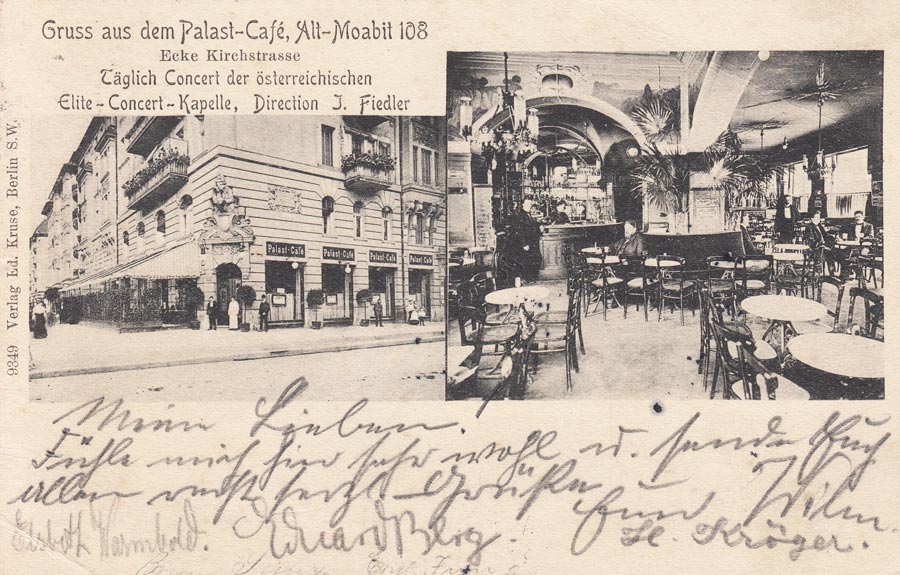 Gruss aus dem Palast-Café, Alt-Moabit 108
Ecke Kirchstrasse
Täglich Concert der österreichischen
Elite-Concert-Kapelle, Direction J. Fiedler
9349 Verlag Ed. Kruse, Berlin S.W.
Palast-Café
Palast-Café
Palast-Café
Palast-Café
Meine Lieben!
Fühle mich hier sehr wohl u. sende Euch
allen recht herzl. Grüße Euer
Elsbeth Warmbold. Eduard Berg. H. Kröger.